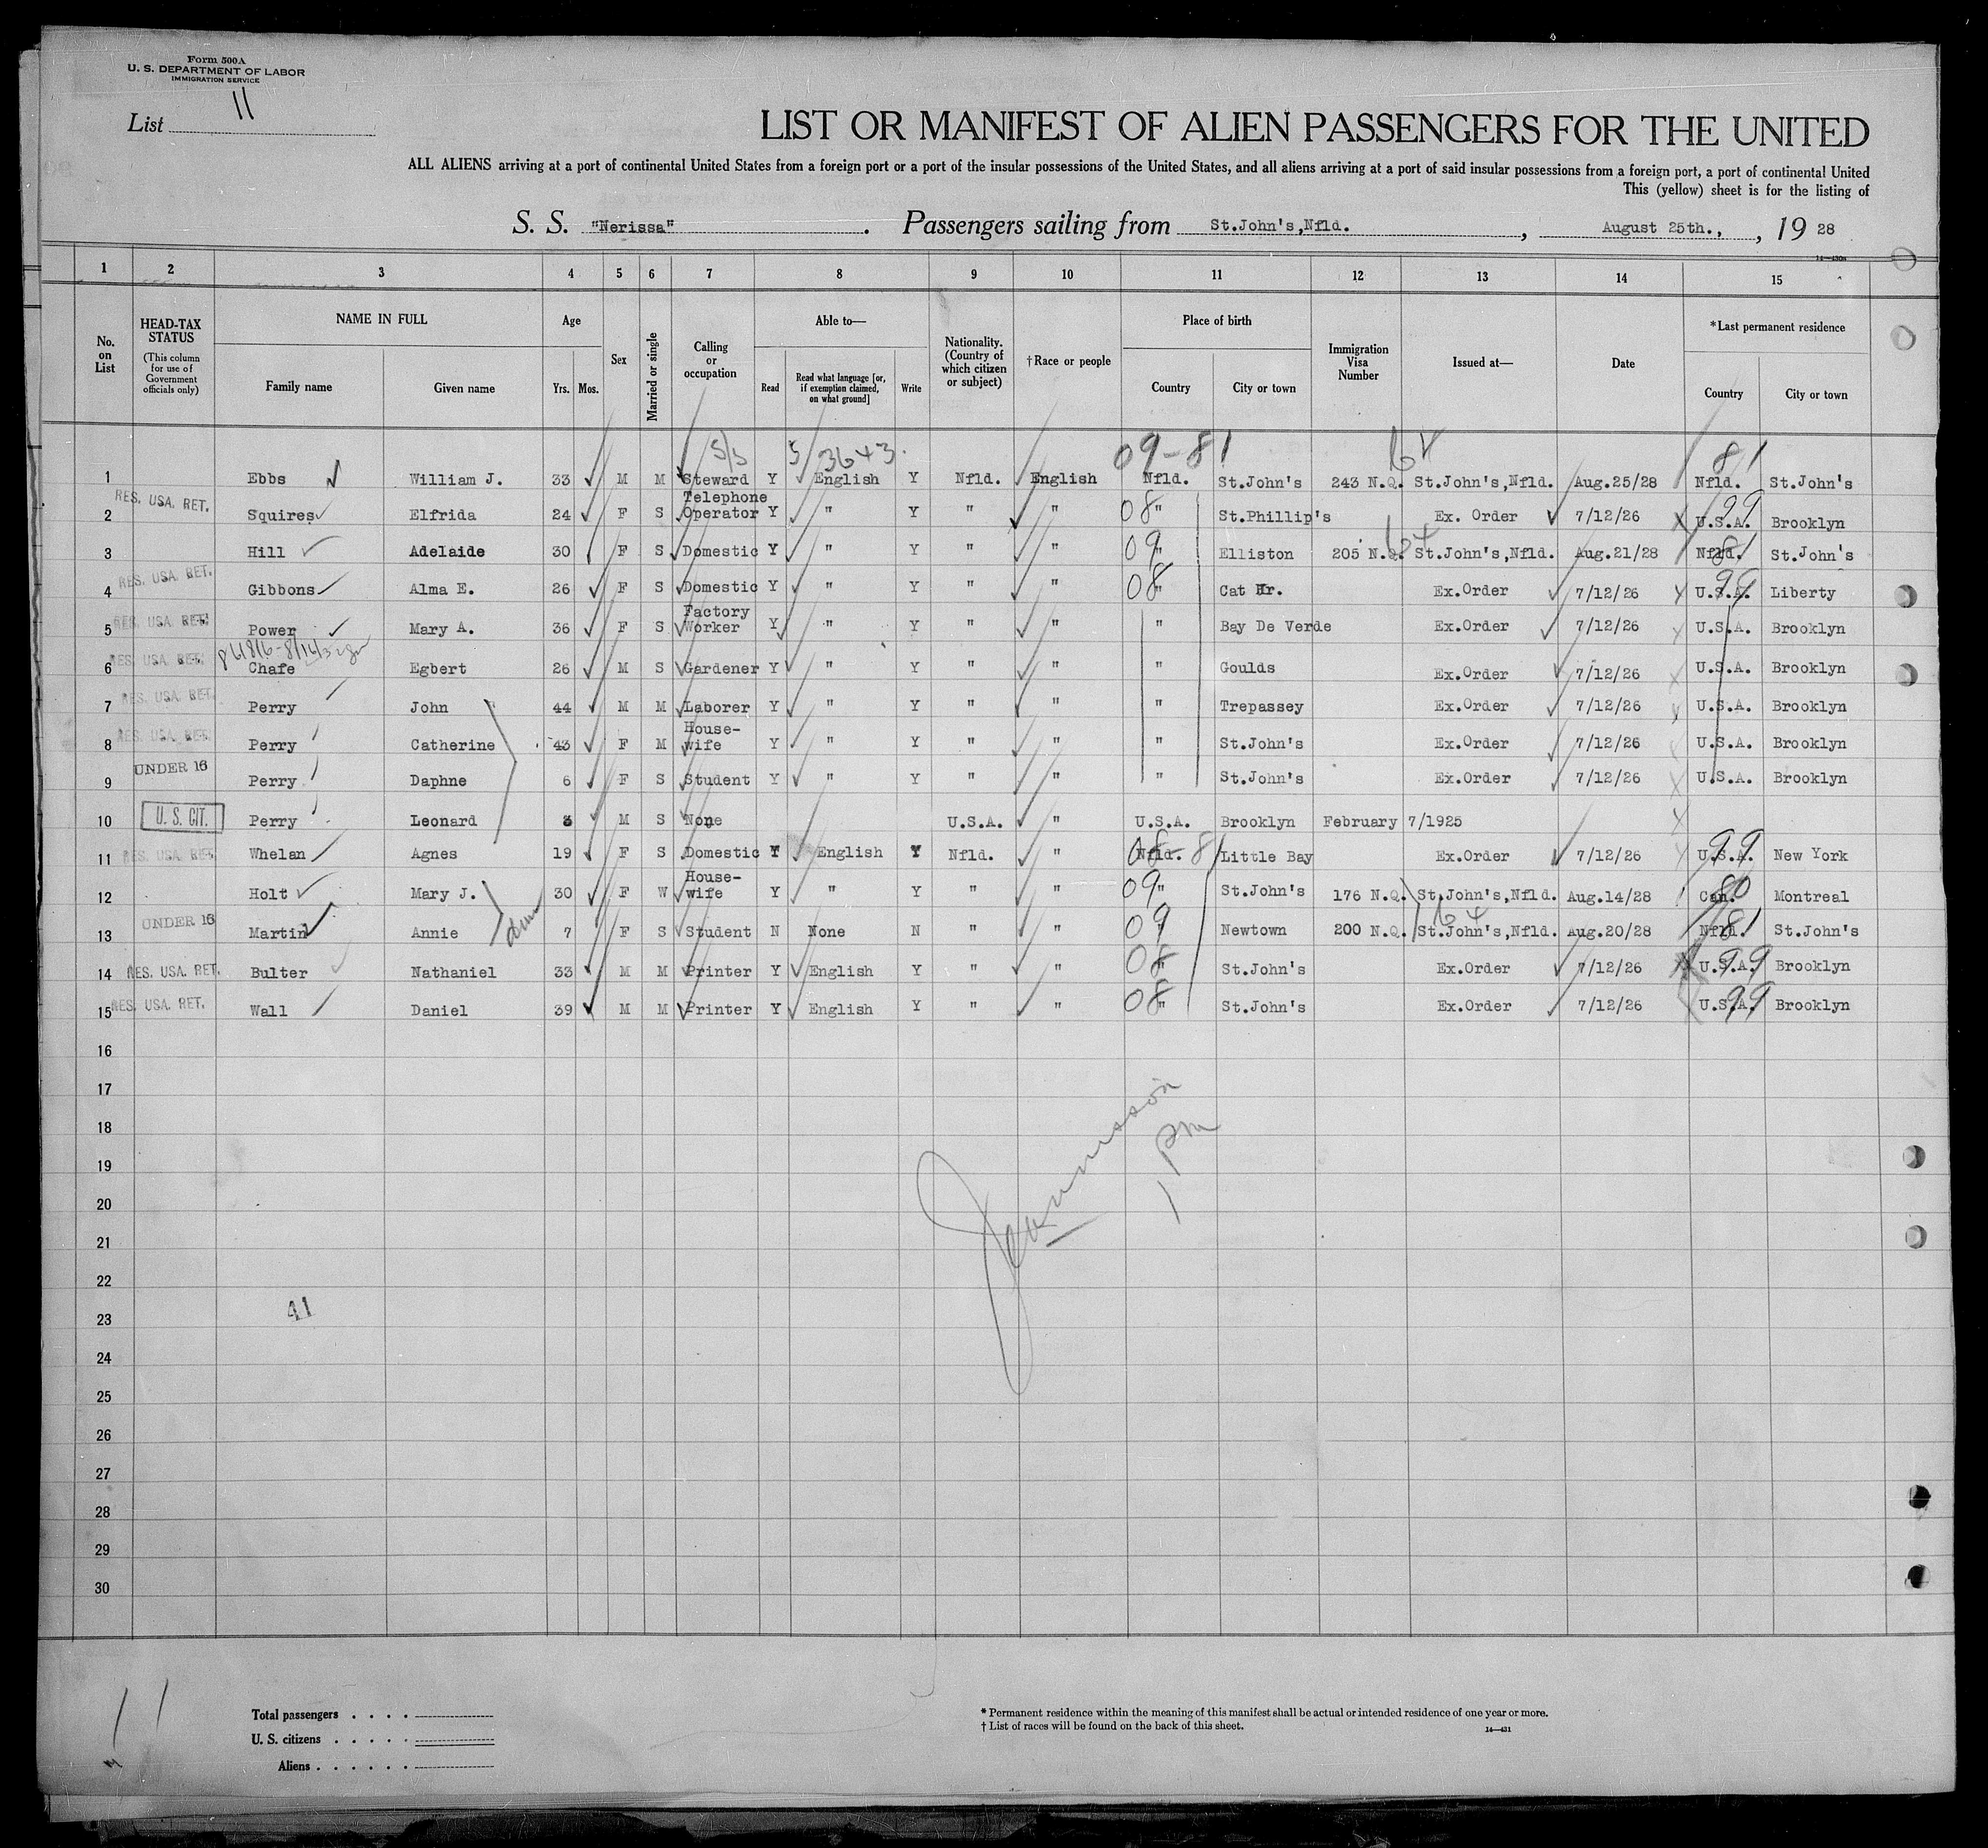 Form 500A
U. S. DEPARTMENT OF LABOR
IMMIGRATION SERVICE
List 11
LIST OR MANIFEST OF ALIEN PASSENGERS FOR THE UNITED
ALL ALIENS arriving at a port of continental United States from a foreign port or a port of the insular possessions of the United States, and all aliens arriving at a port of said insular possessions from a foreign port, a port of continental United
This (yellow) sheet is for the listing of
S. S. "Nerissa". Passengers sailing from St.John's,Nfld., August 25th., , 19 28
14—430a
1 2 3 4 5 6 7 8 9 10 11 12 13 14 15
No. on List
HEAD-TAX STATUS (This column for use of Government officials only)
NAME IN FULL
Family name Given name
Age
Yrs. Mos.
Sex
Married or single
Calling or occupation
Able to—
Read
Read what language [or, if exemption claimed, on what ground]
Write
Nationality. (Country of which citizen or subject)
†Race or people
Place of birth
Country City or town
Immigration Visa Number
Issued at—
Date
*Last permanent residence
Country City or town
S/S 5/3643. 09-81 64 81
1 Ebbs William J. 33 M M Steward Y English Y Nfld. English Nfld. St.John's 243 N.Q. St.John's,Nfld. Aug.25/28 Nfld. St.John's
2 RES. USA. RET. Squires Elfrida 24 F S Telephone Operator Y " Y " " 08 " St.Phillip's Ex. Order 7/12/26 U.S.A. 99 Brooklyn
3 Hill Adelaide 30 F S Domestic Y " Y " " 09 " Elliston 205 N.Q. 64 St.John's,Nfld. Aug.21/28 Nfld. 81 St.John's
4 RES. USA. RET. Gibbons Alma E. 26 F S Domestic Y " Y " " 08 " Cat Hr. Ex.Order 7/12/26 U.S.A. 99 Liberty
5 RES. USA. RET. Power Mary A. 36 F S Factory Worker Y " Y " " " Bay De Verde Ex.Order 7/12/26 U.S.A. Brooklyn
6 RES. USA. RET. Chafe Egbert 26 M S Gardener Y " Y " " " Goulds Ex.Order 7/12/26 U.S.A. Brooklyn
7 RES. USA. RET. Perry John 44 M M Laborer Y " Y " " " Trepassey Ex.Order 7/12/26 U.S.A. Brooklyn
8 RES. USA. RET. Perry Catherine 43 F M House-wife Y " Y " " " St.John's Ex.Order 7/12/26 U.S.A. Brooklyn
9 UNDER 16 Perry Daphne 6 F S Student Y " Y " " " St.John's Ex.Order 7/12/26 U.S.A. Brooklyn
10 U. S. CIT. Perry Leonard 3 M S None U.S.A. " U.S.A. Brooklyn February 7/1925
11 RES. USA. RET. Whelan Agnes 19 F S Domestic Y English Y Nfld. " Nfld. 08-81 Little Bay Ex.Order 7/12/26 U.S.A. 99 New York
12 Holt Mary J. 30 F W House-wife Y " Y " " 09 " St.John's 176 N.Q. St.John's,Nfld. Aug.14/28 Can. 80 Montreal
13 UNDER 16 Martin Annie 7 F S Student N None N " " 09 " Newtown 200 N.Q. 64 St.John's,Nfld. Aug.20/28 Nfld. 81 St.John's
14 RES. USA. RET. Bulter Nathaniel 33 M M Printer Y English Y " " 08 " St.John's Ex.Order 7/12/26 U.S.A. 99 Brooklyn
15 RES. USA. RET. Wall Daniel 39 M M Printer Y English Y " " 08 " St.John's Ex.Order 7/12/26 U.S.A. 99 Brooklyn
16
17
18
19
20
21
22
23
24
25
26
27
28
29
30
1 pm
41
11
Total passengers
U. S. citizens
Aliens
* Permanent residence within the meaning of this manifest shall be actual or intended residence of one year or more.
† List of races will be found on the back of this sheet.
14—431